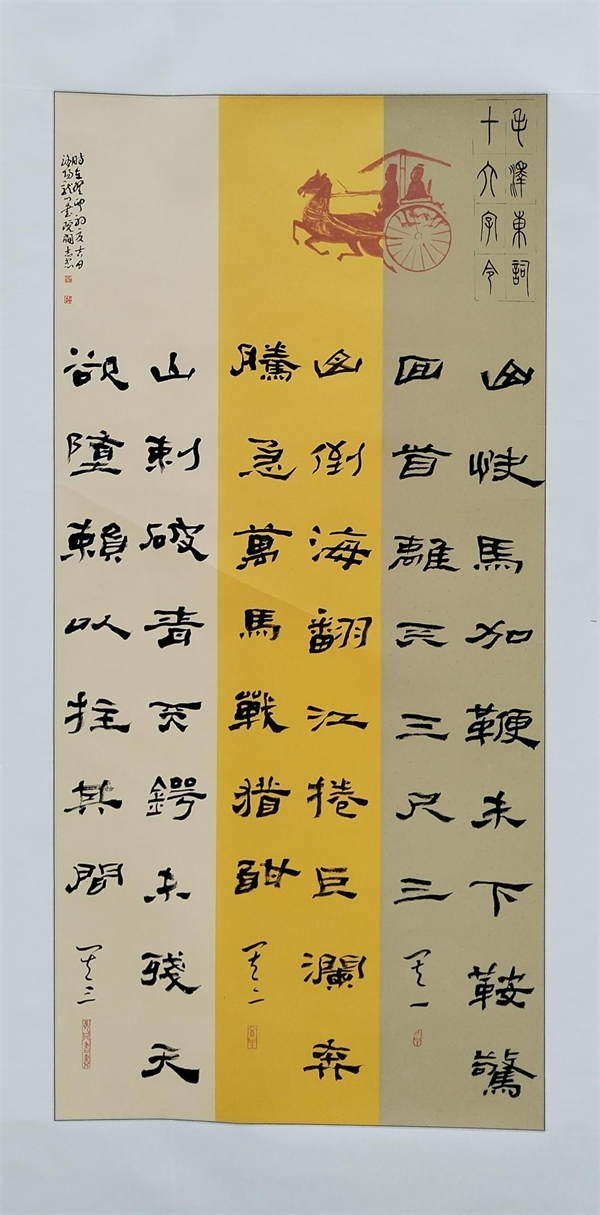 毛澤東詞
十六字令
山快馬加鞭未下鞍驚
回首離天三尺三 其一
山倒海翻江捲巨瀾奔
騰急萬馬戰猶酣 其二
山刺破青天鍔未殘天
欲墮賴以拄其間 其三
時在癸卯初夏吉日